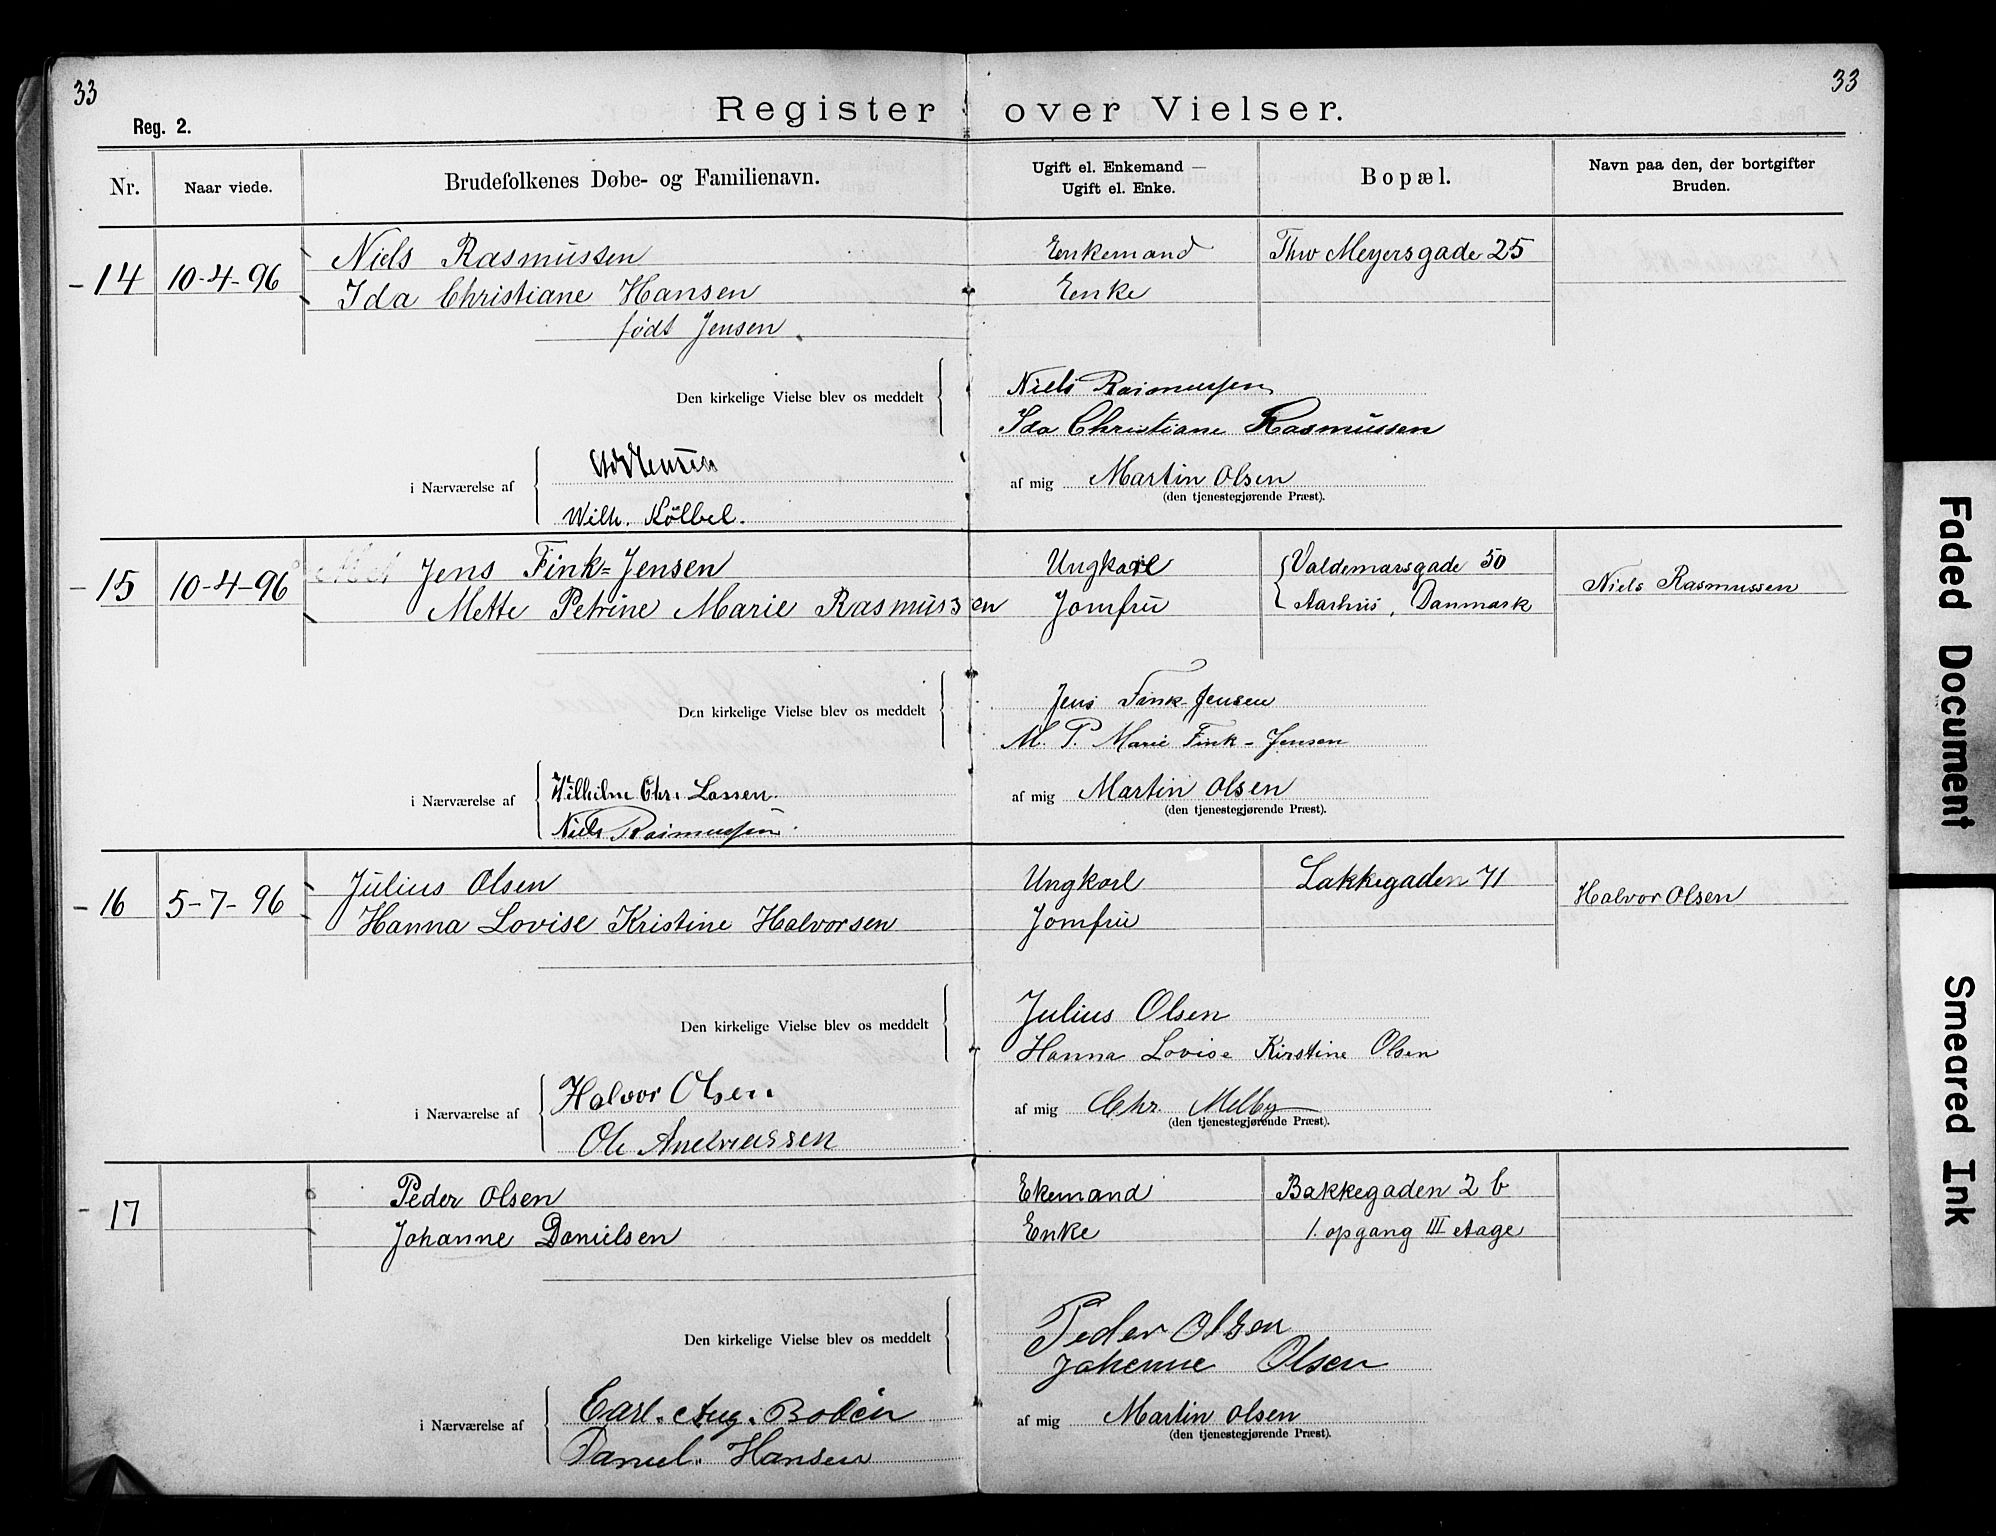 33
33
Register over Vielser.
Reg. 2.
Nr.
Naar viede.
Brudefolkenes Døbe- og Familienavn.
Ugift el. Enkemand —
Ugift el. Enke.
Bopæl.
Navn paa den, der bortgifter
Bruden.
14 10-4-96 Niels Rasmussen Enkemand Thv Meyersgade 25
Ida Christiane Hansen Enke
født Jensen
Den kirkelige Vielse blev os meddelt Niels Rasmussen
Ida Christiane Rasmussen
i Nærværelse af Jensen af mig Martin Olsen
(den tjenestegjørende Præst).
Wilh. Kölbel.
15 10-4-96 Jens Fink=Jensen Ungkarl Valdemarsgade 50 Niels Rasmussen
Mette Petrine Marie Rasmussen Jomfru Aarhus, Danmark
Den kirkelige Vielse blev os meddelt Jens Fink-Jensen
M. P. Marie Fink-Jensen
i Nærværelse af Vilhilm Chr. Lassen. af mig Martin Olsen
(den tjenestegjørende Præst).
Niels Rasmussen.
16 5-7-96 Julius Olsen Ungkarl Lakkegaden 71 Halvor Olsen
Hanna Lovise Kristine Halvorsen Jomfru
Den kirkelige Vielse blev os meddelt Julius Olsen
Hanna Lovise Kirstine Olsen
i Nærværelse af Halvor Olsen. af mig Chr. Melby
(den tjenestegjørende Præst).
Ole Andreassen
17 Peder Olsen Ekemand Bakkegaden 2 b
Johanne Danielsen Enke 1. opgang III etage
Den kirkelige Vielse blev os meddelt Peder Olsen
Johenne Olsen
i Nærværelse af Carl. Aug. Bodén af mig Martin Olsen
(den tjenestegjørende Præst).
Daniel. Hansen
Faded Document
Smeared Ink